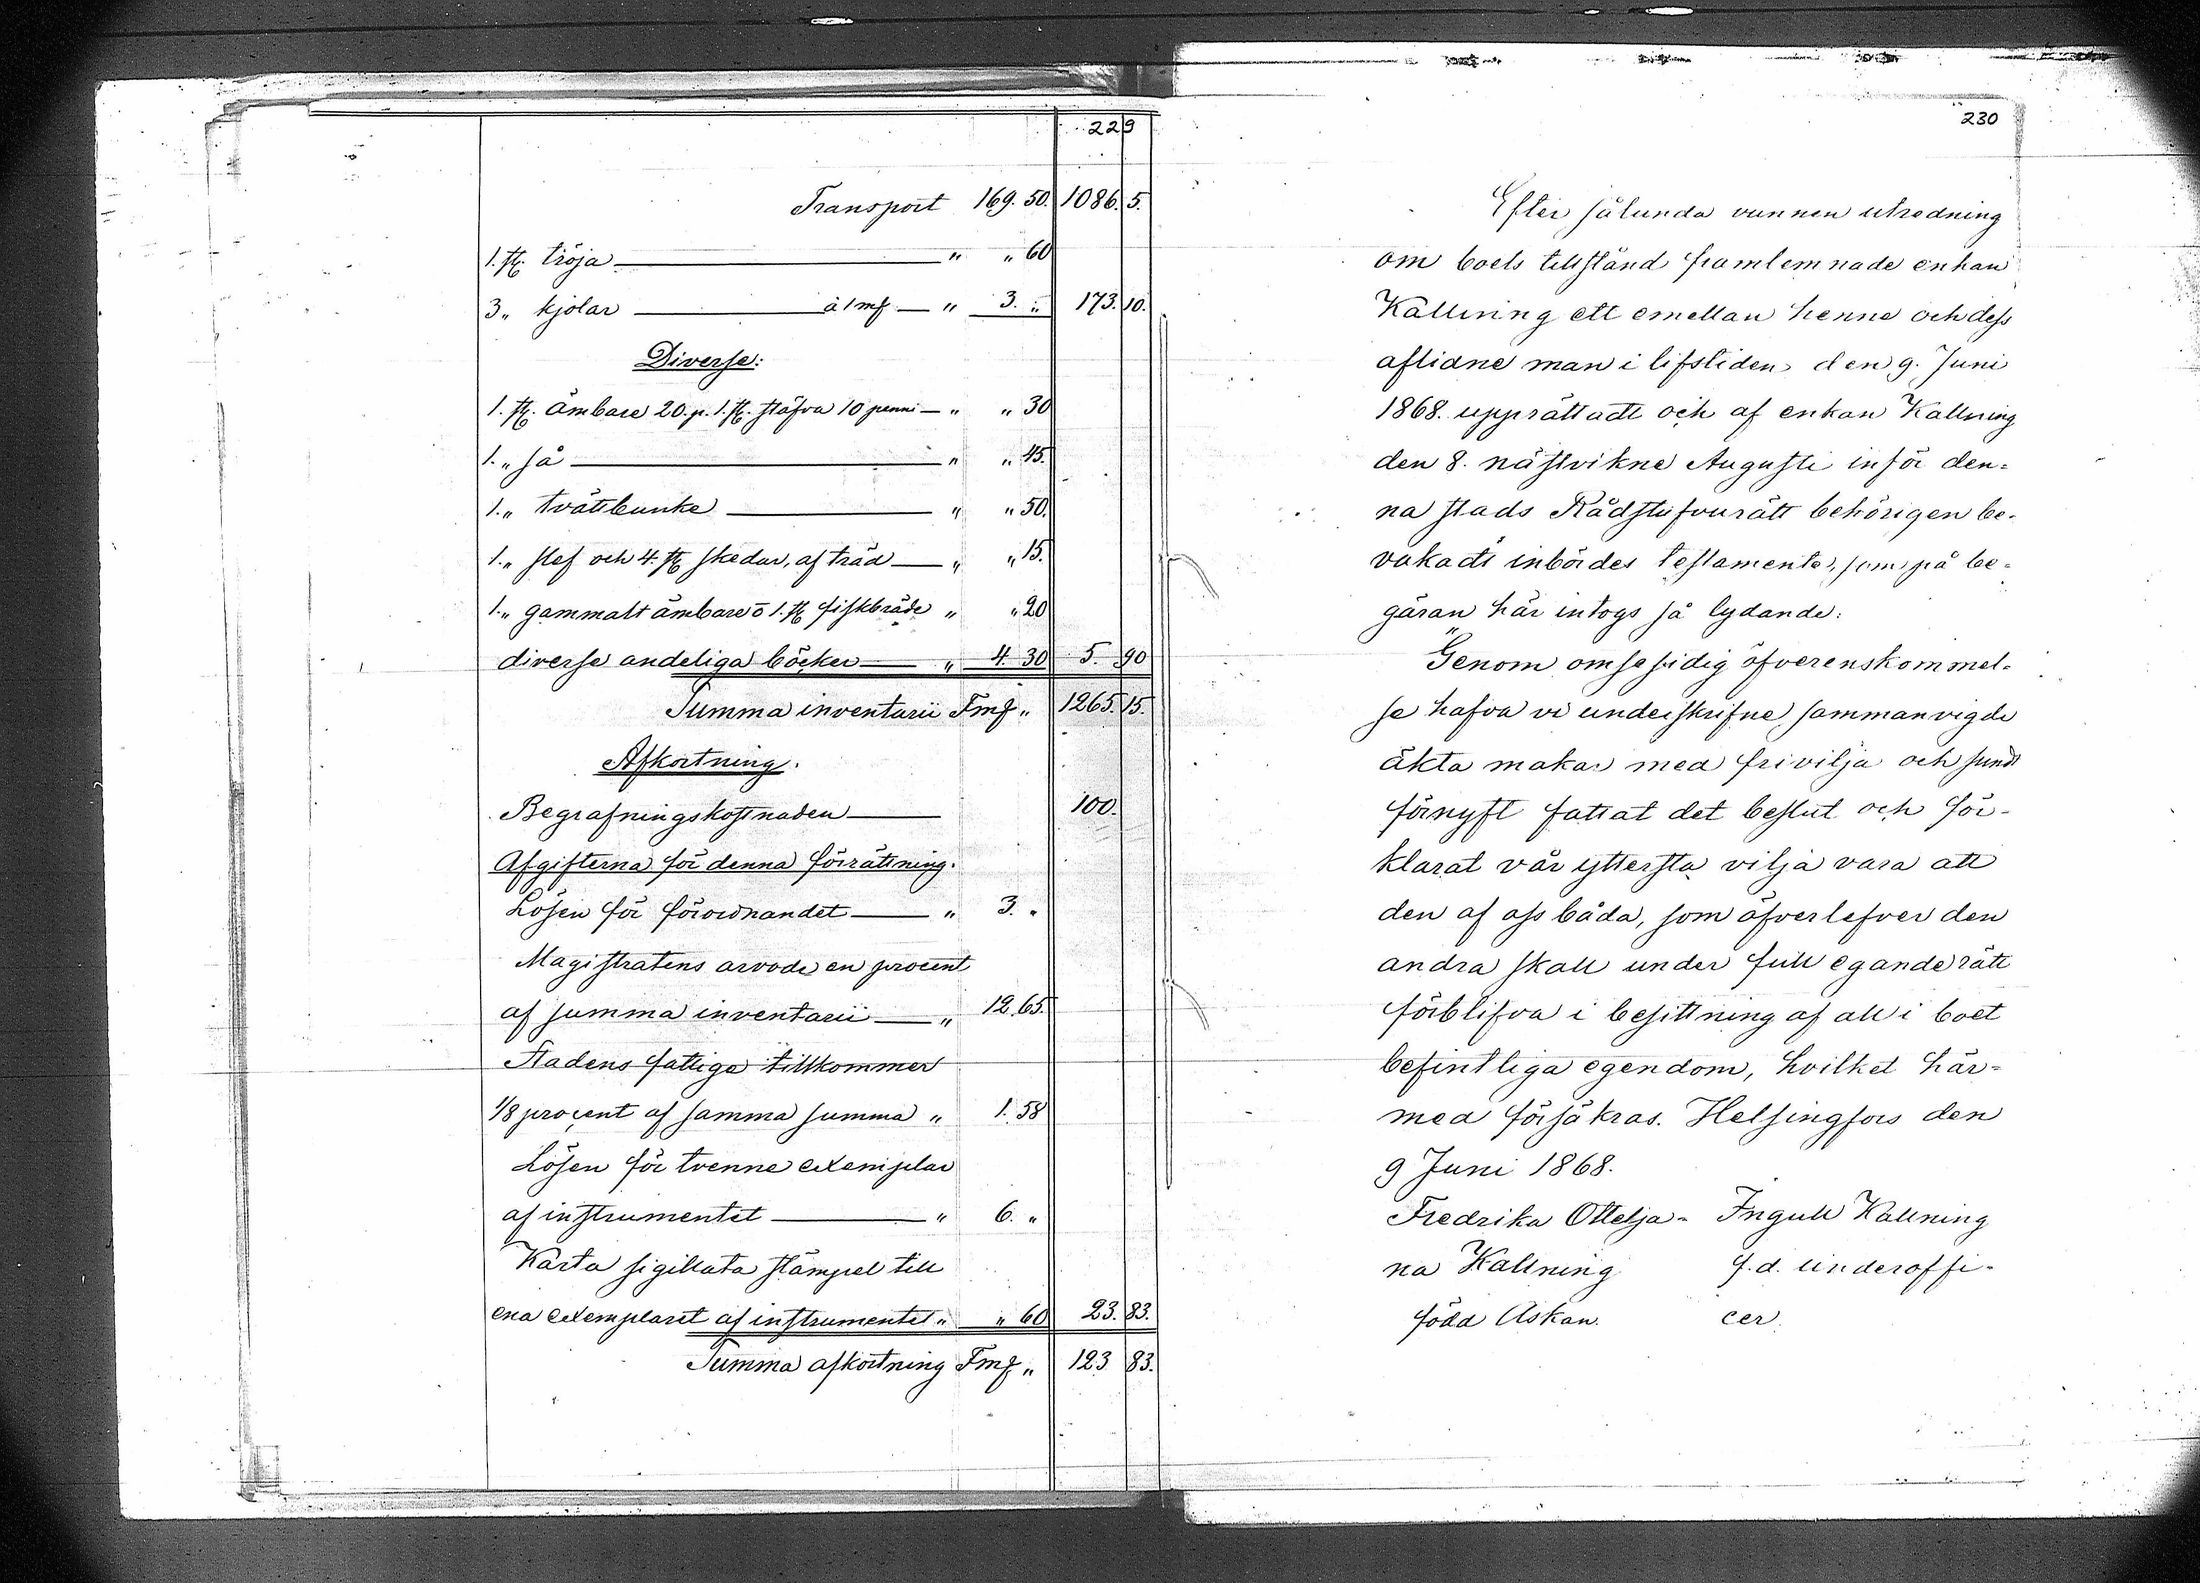 229
Transport 169. 50. 1086. 5.
1. st. tröja " " 60
3 " kjolar à 1 mf " 3. " 173. 10.
Diverse:
1. st. ämbare 20. p. 1. st. stäfva 10 penni " " 30
1. " så " " 45.
1. " tvättbunke " " 50.
1. " slef och 4. st. skedar, af träd " " 15.
1. " gammalt ämbare o 1. st. fiskbräde " " 20
diverse andeliga böcker " 4. 30 5. 90
Summa inventarii Fmf " 1265. 15.
Afkortning.
Begrafningskostnaden 100.
Afgifterna för denna förrättning.
Lösen för förordnandet " 3. "
Magistratens arvode en procent
af summa inventarii " 12. 65.
Stadens fattiga tillkommer
1/8 procent af samma summa " 1. 58
Lösen för tvenne exemplar
af instrumentet " 6. "
Karta sigillata stämpel till
ena exemplaret af instrumentet " " 60 23. 83.
Summa afkortning Fmf " 123 83.
230
Efter sålunda vunnen utredning
om boets tillstånd framlemnade enkan
Kallning ett emellan henne och dess
aflidne man i lifstiden den 9. Juni
1868. upprättadt och af enkan Kallning
den 8. nästvikne Augusti inför den-
na stads Rådstufvurätt behörigen be-
vakadt inbördes testamente, som på be-
gäran här intogs så lydande:
"Genom omsesidig öfverenskommel-
se hafva vi underskrifne sammanvigde
äkta makar med fri vilja och sundt
förnuft fattat det beslut och för-
klarat vår yttersta vilja vara att
den af oss båda, som öfverlefver den
andra skall under full eganderätt
förblifva i besittning af all i boet
befintliga egendom, hvilket här-
med försäkras. Helsingfors den
9 Juni 1868.
Fredrika Ottelja- Ingull Kallning
na Kallning f.d. underoffi-
född Askan. cer.